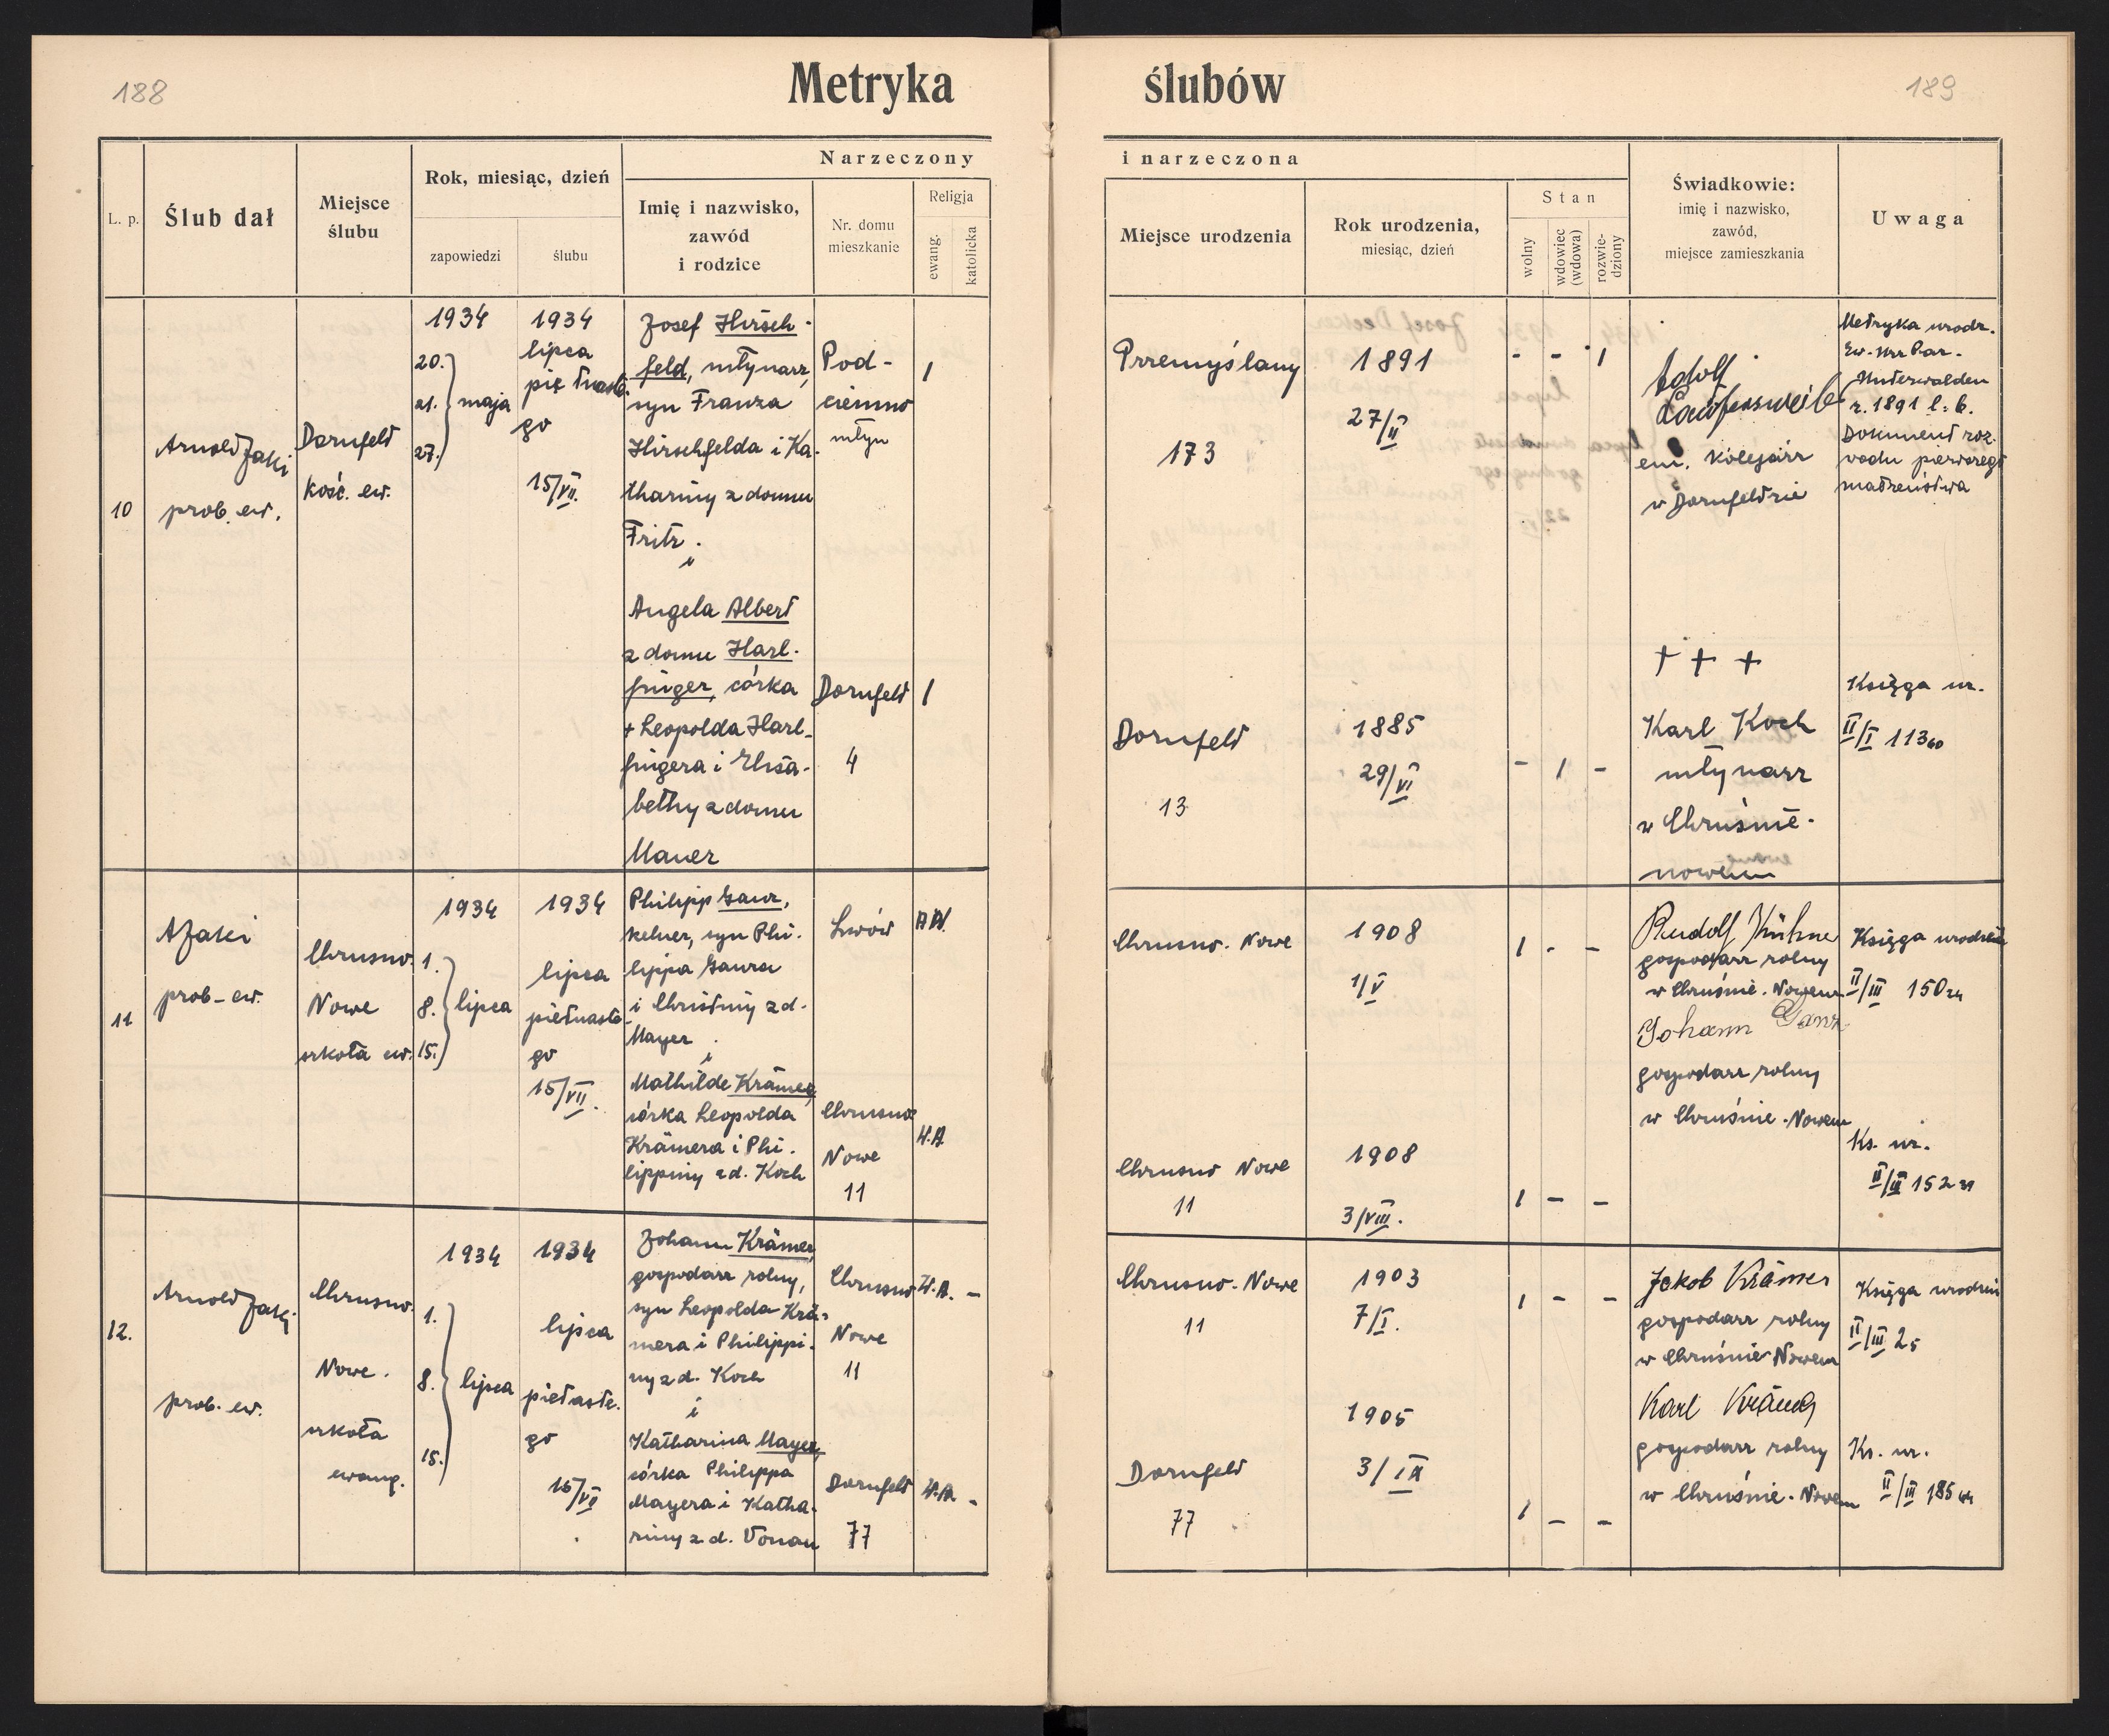 188
Metryka
ślubów
189
L. p.
Ślub dał
Miejsce
ślubu
Rok, miesiąc, dzień
zapowiedzi
ślubu
Narzeczony
Imię i nazwisko,
zawód
i rodzice
Nr. domu
mieszkanie
Religja
ewang.
katolicka
i narzeczona
Miejsce urodzenia
Rok urodzenia,
miesiąc, dzień
Stan
wolny
wdowiec
(wdowa)
rozwie-
dziony
Świadkowie:
imię i nazwisko,
zawód,
miejsce zamieszkania
Uwaga
10
Arnold Jaki
prob. ew.
Dornfeld
kośc. ew.
1934
20.
21. maja
27.
1934
lipca
piętnaste-
go
15/VII.
Josef Hirsch-
feld, młynarz,
syn Franza
Hirschfelda i Ka-
thariny z domu
Fritz.
i
Angela Albert
z domu Harl-
finger, córka
+ Leopolda Harl-
fingera i Elisa-
bethy z domu
Mauer
Pod-
ciemno
młyn
1
Dornfeld
4
1
Przemyślany
173
1891
27/II
- - 1
Adolf
em. kolejarz
w Dornfeldzie
Metryka urodz.
Unterwalden
r. 1891 l. 6.
Dokument roz-
wodu pierwszego
małżeństwa
Dornfeld
13
1885
29/VI
- 1 -
+ + +
Karl Koch
młynarz
w Chruśnie-
nowem
Księga ur.
II/I 113 60
11
A Jaki
prob-ew.
Chrusno-
Nowe
szkoła ew.
1934
1.
8. lipca
15.
1934
lipca
piętnaste-
go
15/VII.
Philipp Ganz,
kelner, syn Phi-
lippa Ganza
i Christiny z d.
Mayer
i
Mathilde Krämer,
córka Leopolda
Krämera i Phi-
lippiny z d. Koch
Lwów
Chrusno
Nowe
11
H.A
Chrusno-Nowe
1908
1/V
1 - -
Rudolf Kühne
gospodarz rolny
w Chruśnie-Nowem
Johann Ganz
gospodarz rolny
w Chruśnie-Nowem
Księga urodzin
II/III 150 24
Chrusno Nowe
11
1908
3/VIII.
1 - -
Ks. ur.
II/III 152 31
12.
Arnold Jaki
prob. ew.
Chrusno-
Nowe.
szkoła
ewang.
1934
1.
8. lipca
15.
1934
lipca
piętaste-
go
15/VII
Johann Krämer,
gospodarz rolny,
syn Leopolda Krä-
mera i Philippi-
ny z d. Koch
i
Katharina Mayer,
córka Philippa
Mayera i Katha-
riny z d. Vonau
Chrusno
Nowe
11
H.A. -
Dornfeld
77
H.A. -
Chrusno-Nowe
11
1903
7/I.
1 - -
Jakob Krämer
gospodarz rolny
w Chruśnie Nowem
Karl Krämer
gospodarz rolny
w Chruśnie-Nowem
Księga urodzin
II/III 2 5
Dornfeld
77
1905
3/IX
1 - -
Ks. ur.
II/III 185